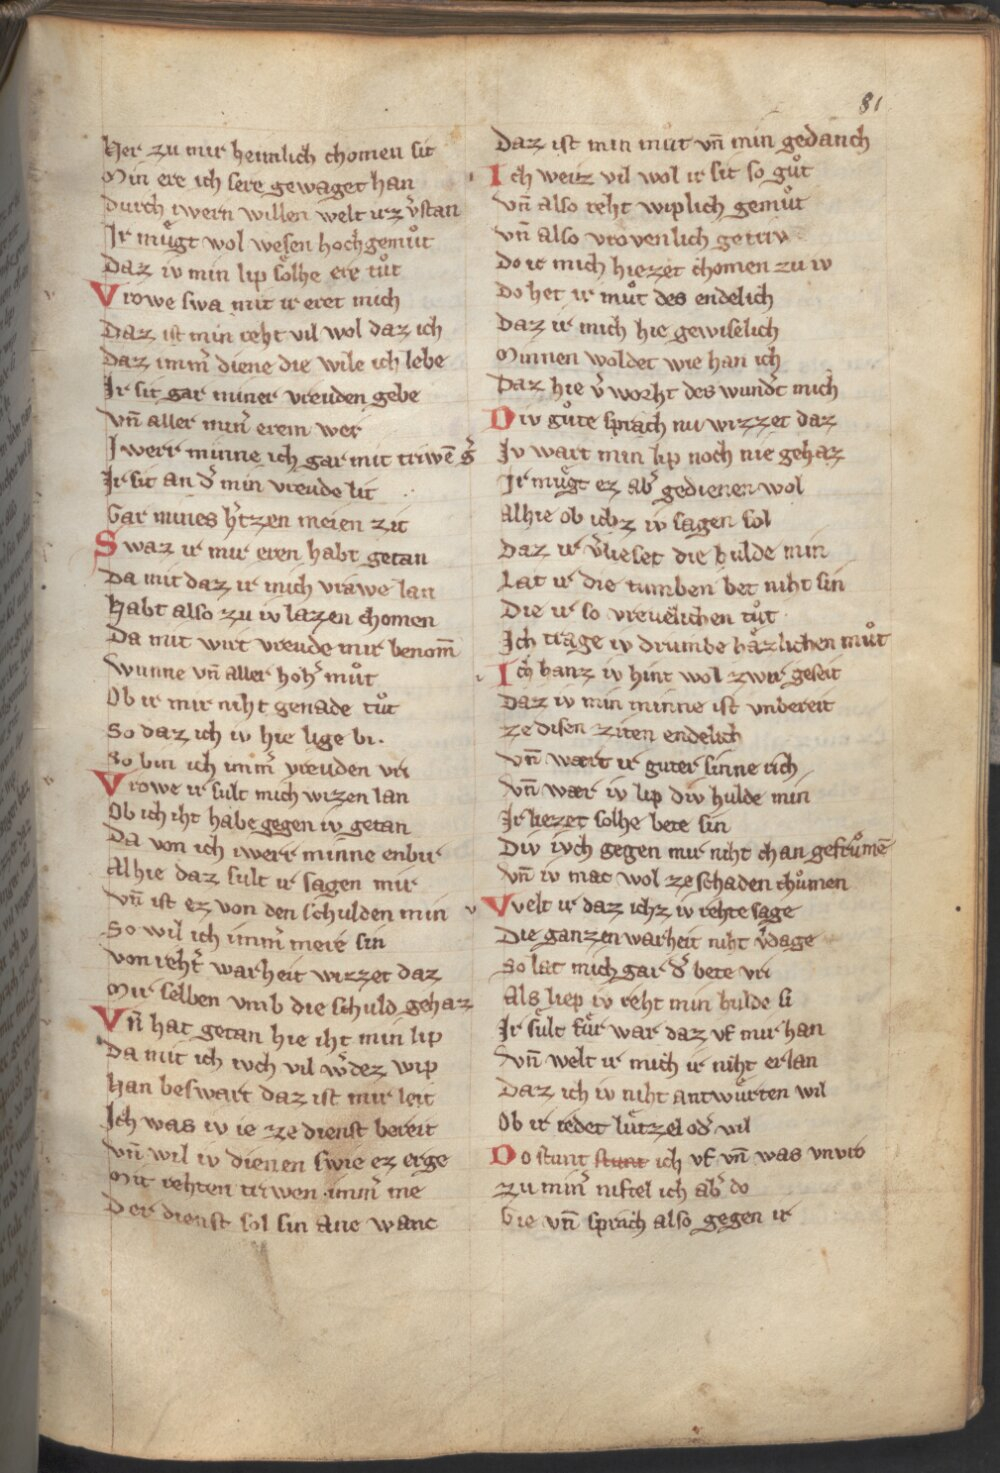 81
Her zu mir heimlich chomen sit
Min ere ich sere gewaget han
Durch iwern willen welt irz v̓stan
Ir mugͤt wol wesen hochgemuͦt
Daz iv min lip soͤlhe ere tuͦt
Vrowe swa mit ir eret mich
Daz ist min reht vil wol daz ich
Daz imm̓ diene die wile ich lebe
Ir sit gar miner vreuden gebe
Vn̄ aller min̓ erein wer
Iwerr minne ich gar mit triwē g̓
Ir sit an d̓ min vreude lit
Gar mines h̓tzen meien zit
Swaz ir mir eren habt getan
Da mit daz ir mich vrawe lan
Habt also zu iv lazen chomen
Da mit wirt vreude mir benom̄
Wunne vn̄ aller hoh̓ muͦt
Ob ir mir niht genade tuͦt
So daz ich iv hie lige bi.
So bin ich imm̓ vreuden vri
Vrowe ir sult mich wizen lan
Ob ich iht habe gegen iv getan
Da von ich iwerr minne enbir
Alhie daz sult ir sagen mir
Vn̄ ist ez von den schulden min
So wil ich imm̓ mere sin
Von reht̓ warheit wizzet daz
Mir selben vmb die schuld gehaz
Vn̄ hat getan hie iht min lip
Da mit ich ivch vil w̓dez wip
Han beswart daz ist mir leit
Ich was iv ie ze dienst bereit
Vn̄ wil iv dienen swie ez erge
Mit rehten triwen imm̓ me
Der dienst sol sin ane wanc
Daz ist min muͦt vn̄ min gedanch
Ich weiz vil wol ir sit so guͦt
Vn̄ also reht wiplich gemuͦt
Vn̄ also vrovenlich getriv
Do ir mich hiezet chomen zu iv
Do het ir muͦt des endelich
Daz ir mich hie gewiselich
Minnen woldet wie han ich
Daz hie v̓worht des wund̓t mich
Div guͦte sprach nu wizzet daz
Iv wart min lip noch nie gehaz
Ir mugͤt ez ab̓ gedienen wol
Alhie ob ichz iv sagen sol
Daz ir v̓lieset die hulde min
Lat ir die tumben bet niht sin
Die ir so vrevelichen tuͦt
Ich trage iv drumbe haͤzlichen muͦt
Ich hanz iv hint wol zwir geseit
Daz iv min minne ist vnbereit
Ze disen ziten endelich
Vn̄ wært ir guter sinne rich
Vn̄ wær iv lip div hulde min
Ir liezet solhe bete sin
Div ivch gegen mir niht chan gefruͦmē
Vn̄ iv mac wol ze schaden chuͦmen
Welt ir daz ichz iv rehte sage
Die ganzen warheit niht v̓dage
So lat mich gar d̓ bete vri
Als liep iv reht min hulde si
Ir suͤlt fuͤr war daz vf mir han
Vn̄ welt ir mich ir niht erlan
Daz ich iv niht antwuͤrten wil
Ob ir redet luͤtzel od̓ vil
Do stunt stunt ich vf vn̄ was vnvro
Zu min̓ niftel ich ab̓ do
Gie vn̄ sprach also gegen ir